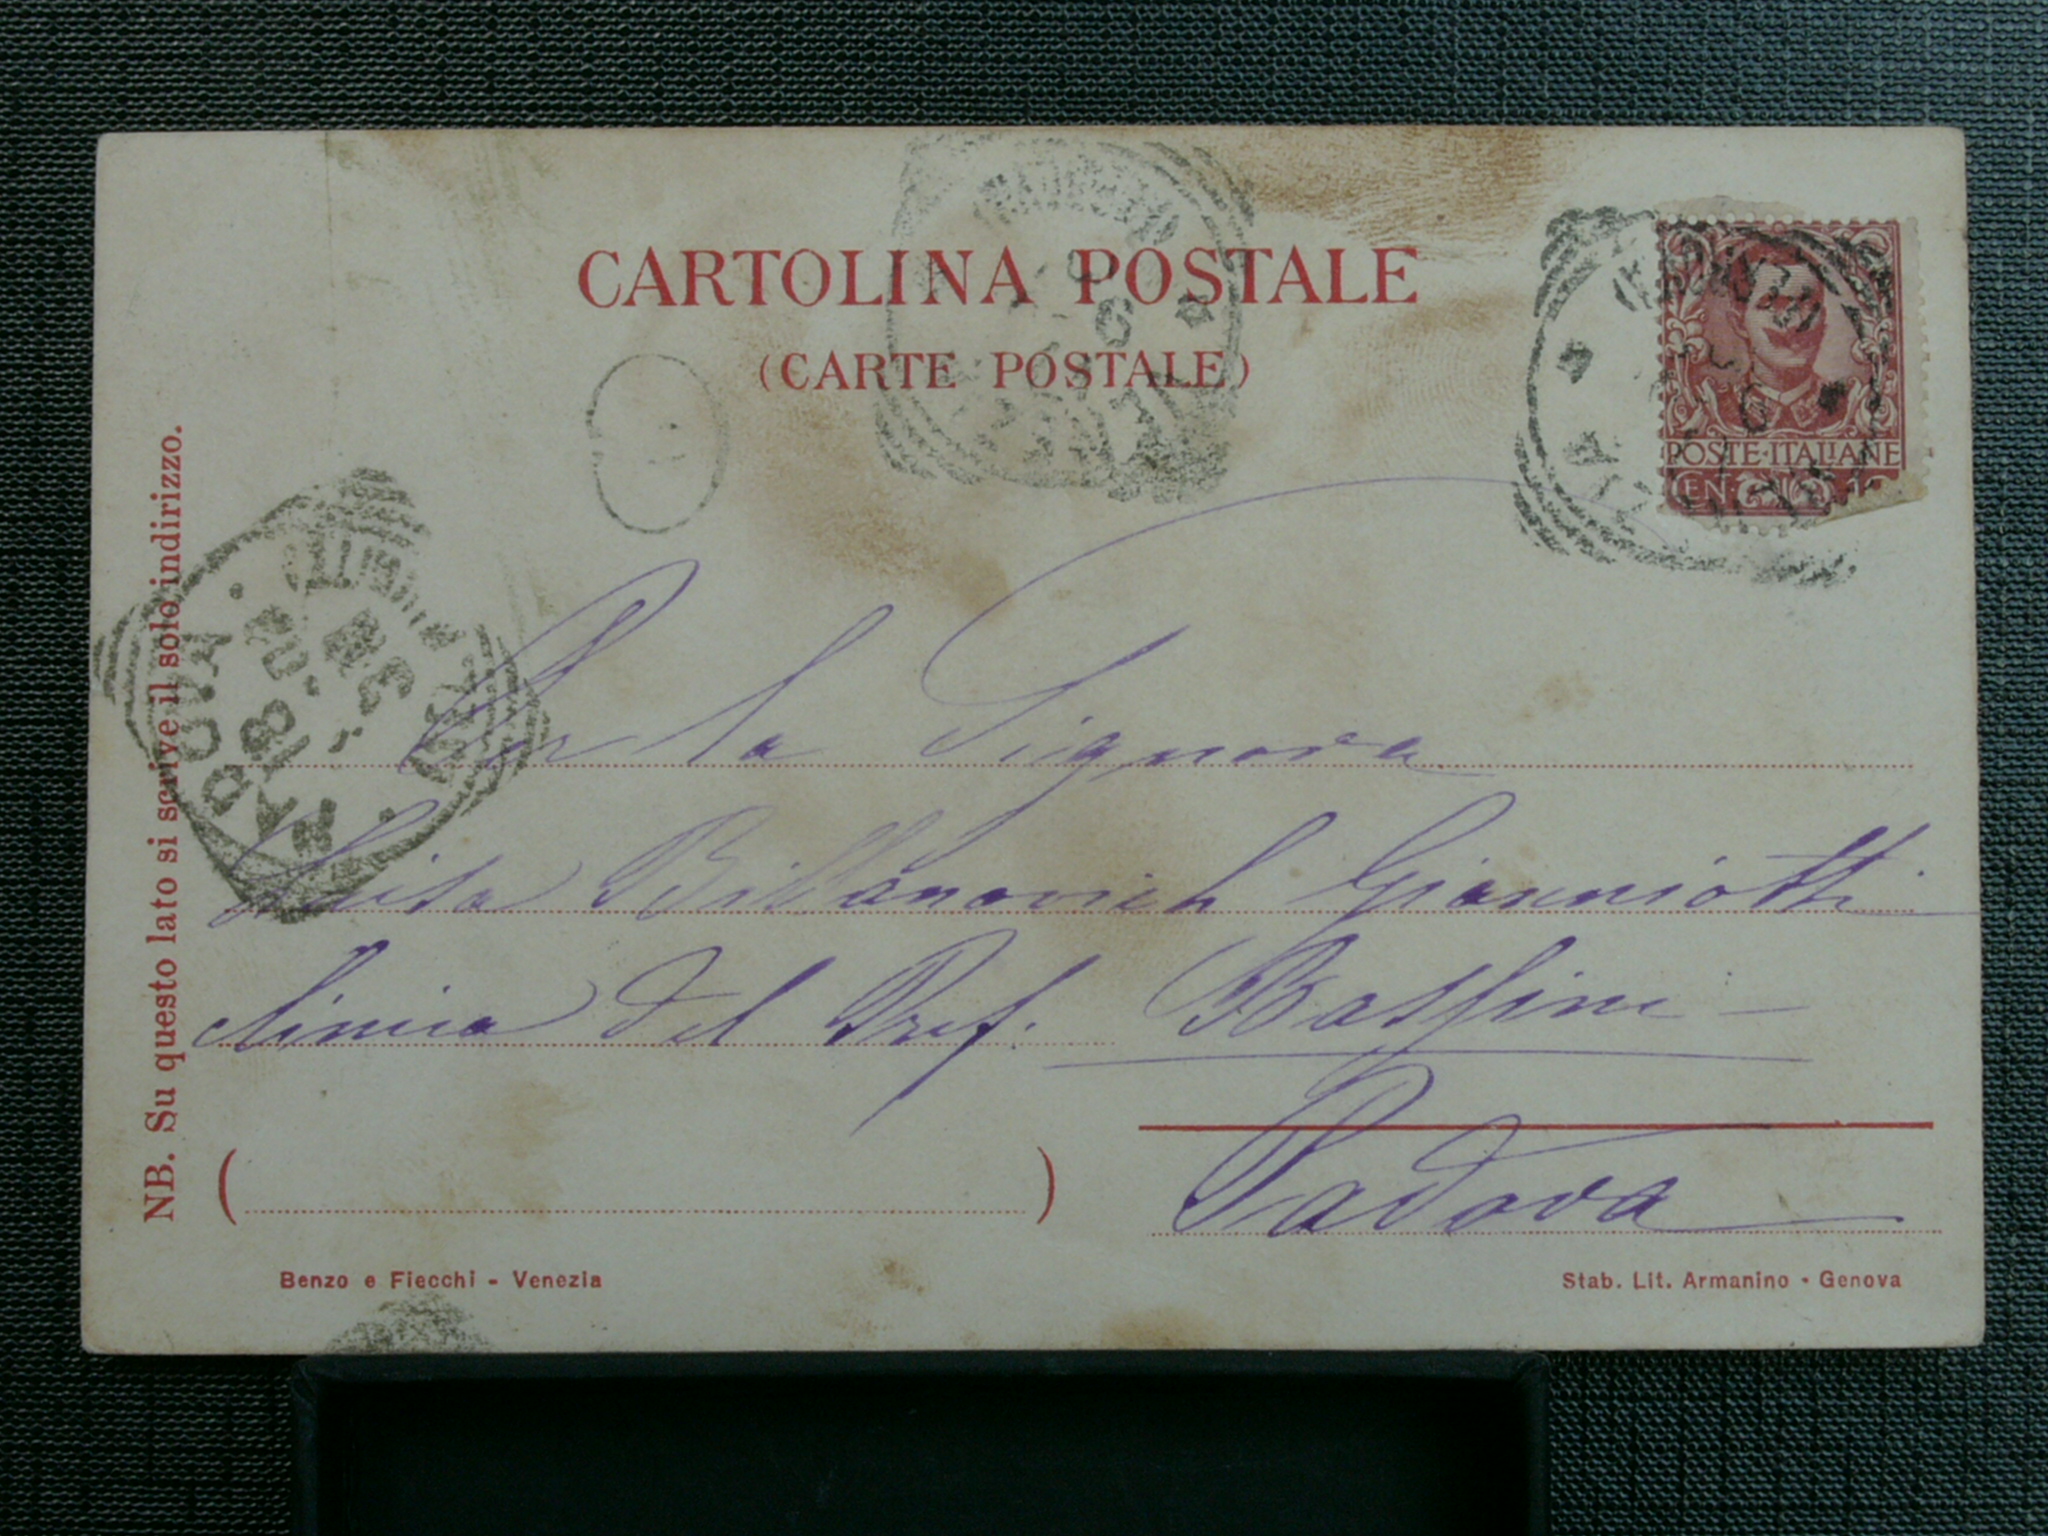 CARTOLINA POSTALE
(CARTE POSTALE)
POSTE·ITALIANE
PADOVA
NB. Su questo lato si scrive il solo indirizzo.
Per la Signora
Luisa Billanovich Gianniotti
Clinica del Prof. Bassini -
Padova
Benzo e Fiecchi - Venezia
Stab. Lit. Armanino - Genova